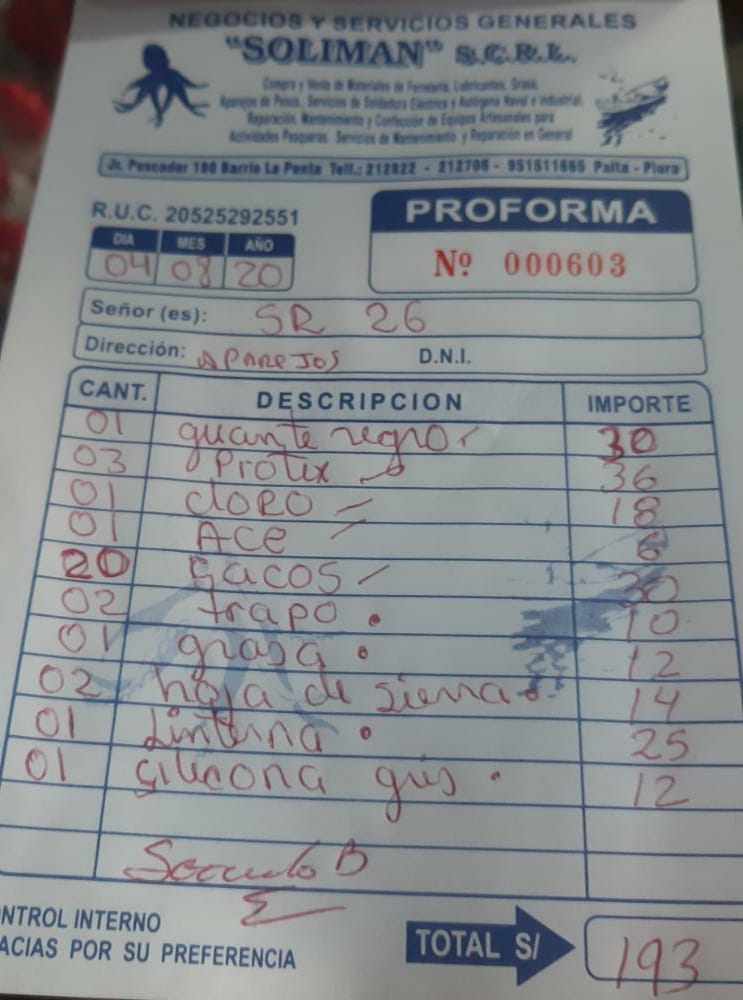 NEGOCIOS Y SERVICIOS GENERALES
"SOLIMAN" S.C.R.L.
Compra y Venta de Materiales de Ferretería, Lubricantes, Grasa,
Aparejos de Pesca, Servicios de Soldadura Eléctrica y Autógena Naval e Industrial,
Reparación, Mantenimiento y Confección de Equipos Artesanales para
Actividades Pesqueras. Servicios de Mantenimiento y Reparación en General
Jr. Pescador 100 Barrio La Punta Telf.: 212822 - 212706 - 951511665 Paita - Piura
R.U.C. 20525292551
PROFORMA
DIA MES AÑO
04 08 20
Nº 000603
Señor (es): SR 26
Dirección: APAREJOS D.N.I.
CANT. DESCRIPCION IMPORTE
01 guante negro 30
03 Protex 36
01 CLORO 18
01 ACE 6
20 sacos 30
02 trapo 10
01 grasa 12
02 hoja de sierra 14
01 Linterna 25
01 silicona gris 12
B
CONTROL INTERNO
GRACIAS POR SU PREFERENCIA
TOTAL S/ 193